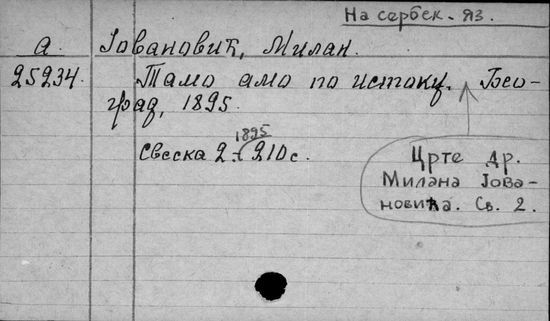 На сербск. яз.
а. Јовановић, Милан.
25234. Тамо амо по истоку. Бео-
град, 1895.
1895
Свеска 2. 210 с.
Црте др.
Милана Јова-
новића. Св. 2.